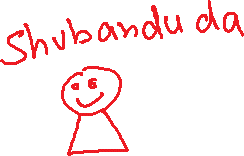 Shubandu da